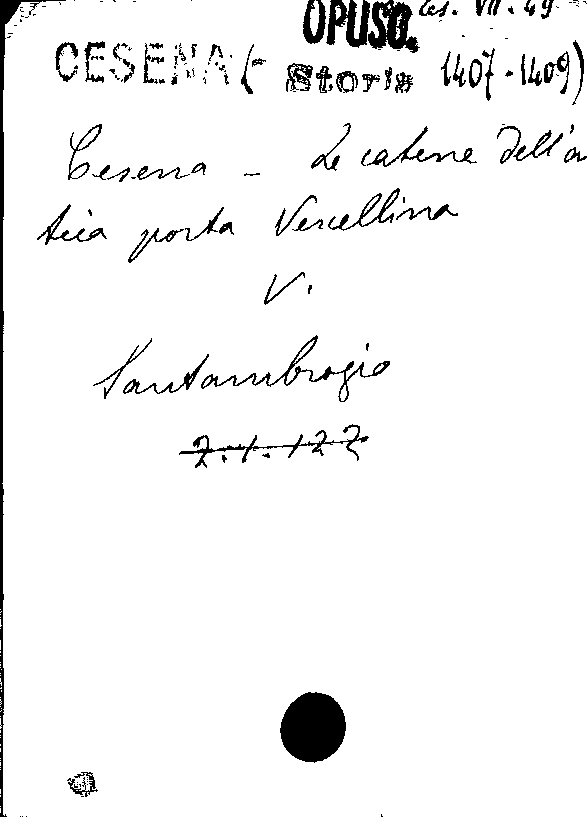 OPUSC. Ces. VII. 49
CESENA (- Storia 1407-1409)
Cesena - Le catene dell'an
tica porta Vercellina
V.
Santambrogio
7.1.122